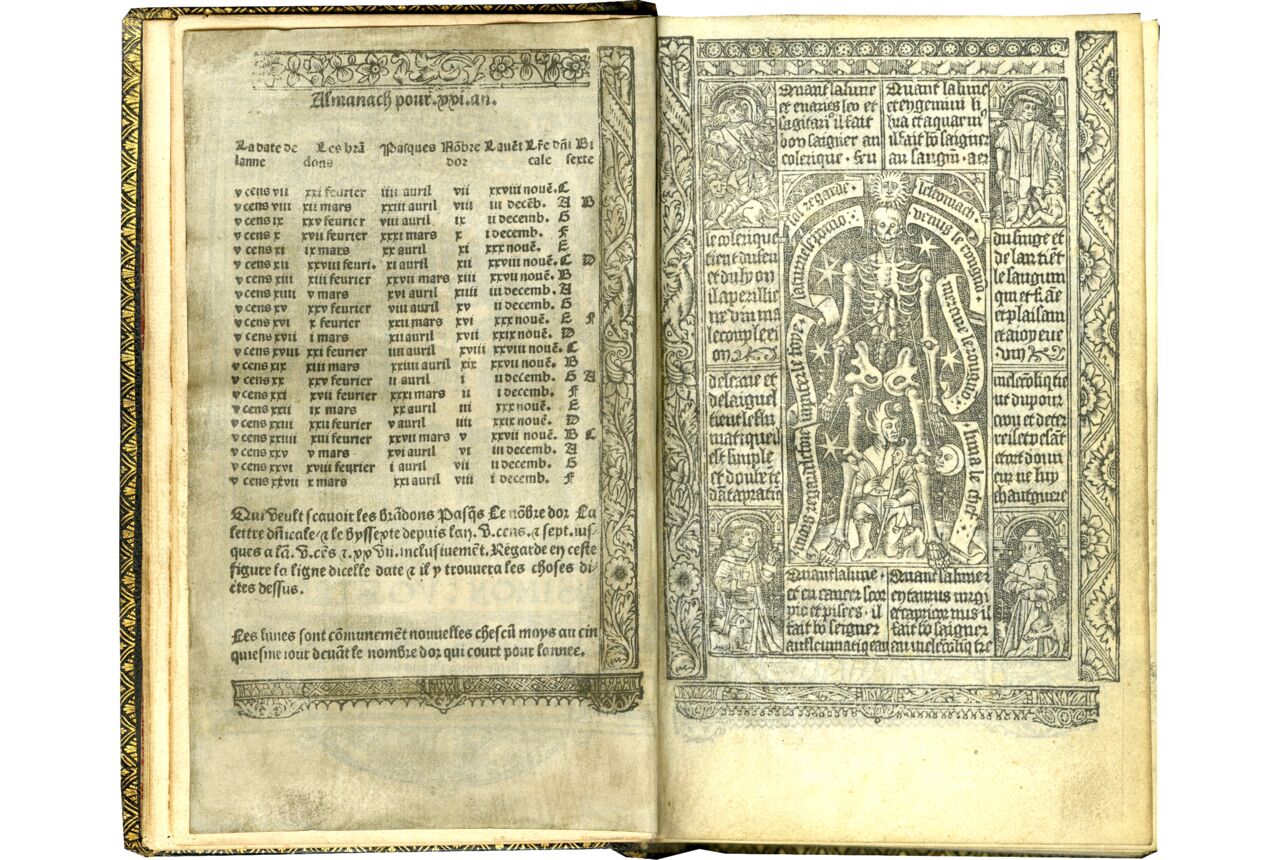 Almanach pour .xxi. an.
La date de Les brã Pasques Nõbre Lauẽt Lr̃e dñi Bi
lanne dons dor cale sexte
v cens vii xxi feurier iiii auril vii xxviii nouẽ. C
v cens viii xii mars xxiii auril viii iii decẽb. A B
v cens ix xxv feurier viii auril ix ii decemb. G
v cens x xvii feurier xxxi mars x i decemb. F
v cens xi ix mars xx auril xi xxx nouẽ. E
v cens xii xxviii feuri. xi auril xii xxviii nouẽ. C D
v cens xiii xiii feurier xxvii mars xiii xxvii nouẽ. B
v cens xiiii v mars xvi auril xiiii iii decemb. A
v cens xv xxv feurier viii auril xv ii decemb. G
v cens xvi x feurier xxiii mars xvi xxx nouẽ. E F
v cens xvii i mars xii auril xvii xxix nouẽ. D
v cens xviii xxi feurier iiii auril xviii xxviii nouẽ. C
v cens xix xiii mars xxiiii auril xix xxvii nouẽ. B
v cens xx xxv feurier ii auril i ii decemb. G A
v cens xxi xvii feurier xxxi mars ii i decemb. F
v cens xxii ix mars xx auril iii xxx nouẽ. E
v cens xxiii xxii feurier v auril iiii xxix nouẽ. D
v cens xxiiii xiii feurier xxvii mars v xxvii nouẽ. B C
v cens xxv v mars xvi auril vi iii decemb. A
v cens xxvi xviii feurier i auril vii ii decemb. G
v cens xxvii x mars xxi auril viii i decemb. F
Qui veult scauoir les brãdons Pasq̃s Le nõbre dor La
lettre dñicale ⁊ le byssepte depuis lan. v. cens. ⁊ sept. ius-
ques a lã. v. cẽs ⁊. xx vii. inclusiuemẽt. Regarde en ceste
figure la ligne dicelle date ⁊ il y trouuera les choses di-
ctes dessus.
Les lunes sont cõmunemẽt nouuelles chescũ moys au cin
quiesme iour deuãt le nombre dor qui court pour lannee.
Quant la lune
et en aries leo et
sagitari⁹ il fait
bon saigner au
colerique. feu
Quant la lune
et en gemini li
bra et aquari⁹
il fait bõ saigner
au sanguin. aer
sol regarde
lestomach.
saturne le pomõ.
venus le rongnõ.
iupiter le foye
mercure le rongnõ.
mars regarde
luna le chef.
le colerique
tient du feu
et du lyon
il a perillie
ux vin ma
le complexi
on
du singe et
de lair tiẽt
le sanguin
et plaisant
et ioyeux
vin
de leaue et
de laignel
tient le fleu
matique il
est simple
et
melẽcoliq̃ tiẽ
nt du pourc
eau et de ter
re il est pesãt
et ort don vin
eur ne luy
chault guiere
Quant la lune
et en cancer scor
pio et pisces. il
fait bõ seigner
au fleumatiq̃ eau
Quant la lune
en taurus virgo
et capricornus il
fait bõ saigner
au melẽcoliq̃ t̃re